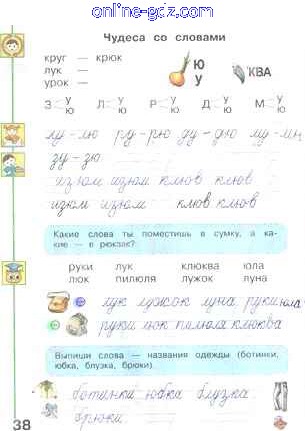 online-gdz.com
Чудеса со словами
круг — крюк
лук —
урок —
Ю
У
КВА
З У Ю Л У Ю Р У Ю Д У Ю М У Ю
лу - лю ру - рю ду - дю му - мю
зу - зю
изюм изюм клюв клюв
изюм изюм клюв клюв
Какие слова ты поместишь в сумку, а ка-
кие — в рюкзак?
руки лук клюква юла
люк пилюля лужок луна
лук лужок луна руки юла
руки люк пилюля клюква
Выпиши слова — названия одежды (ботинки,
юбка, блузка, брюки).
ботинки юбка блузка
брюки
38